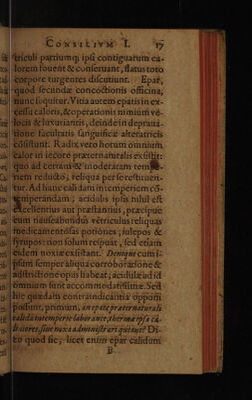 CONSILIVM I. 17
triculi partiumq; ipsi contiguarum ca-
lorem fouent & conseruant, flatus toto
corpore turgentes discutiunt. Epar,
quod secundæ concoctionis officina,
nunc sequitur. Vitia autem epatis in ex-
cessu caloris, & operationis nimium ve-
locis & luxuriantis, deinde in depraua-
tione facultatis sanguificæ alteratricis
cōsistunt. Radix vero horum omnium
calor in iecore præternaturalis existit:
quo ad certam & moderatam tempe-
riem reducto, reliqua per se restituen-
tur. Ad hanc calidam intemperiem cō-
temperandam; acidulis ipsis nihil est
excellentius aut præstantius, præcipue
cum nauseabundus vētriculus reliquas
medicamentosas potiones, iulepos &
syrupos: non solum respuat, sed etiam
eidem noxiæ existant. Denique cum i-
psismet semper aliqua corroboratione &
adstrictione opus habeat; acidulæ ad id
omnium sunt accommodatissimæ. Sed
hic quædam contraindicantia opponi
possunt, primum, an epate præternaturali
calida intemperie laborante, thermæ ipsæ ca-
lidiores, siue noxa administrari queant? Di-
co quod sic, licet enim epar calidum
B